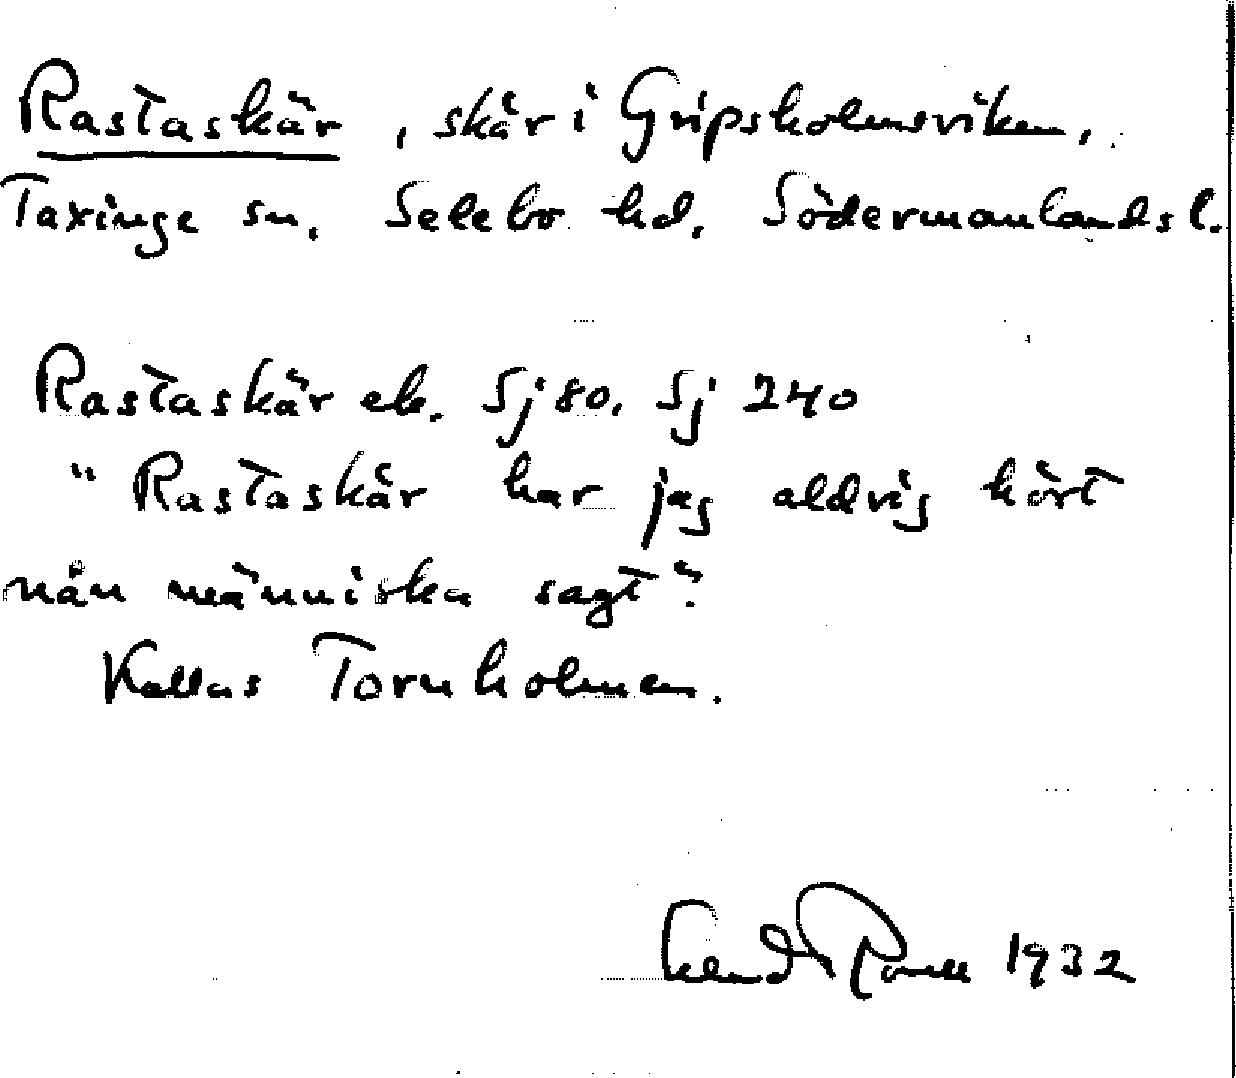 Rastaskär, skär i Gripsholmsviken,
Taxinge sn. Selebo hd. Södermanlands l.
Rastaskär ek. Sj 80. Sj 240
"Rastaskär har jag aldrig hört
nån människa sagt".
Kallas Tornholmen.
1932